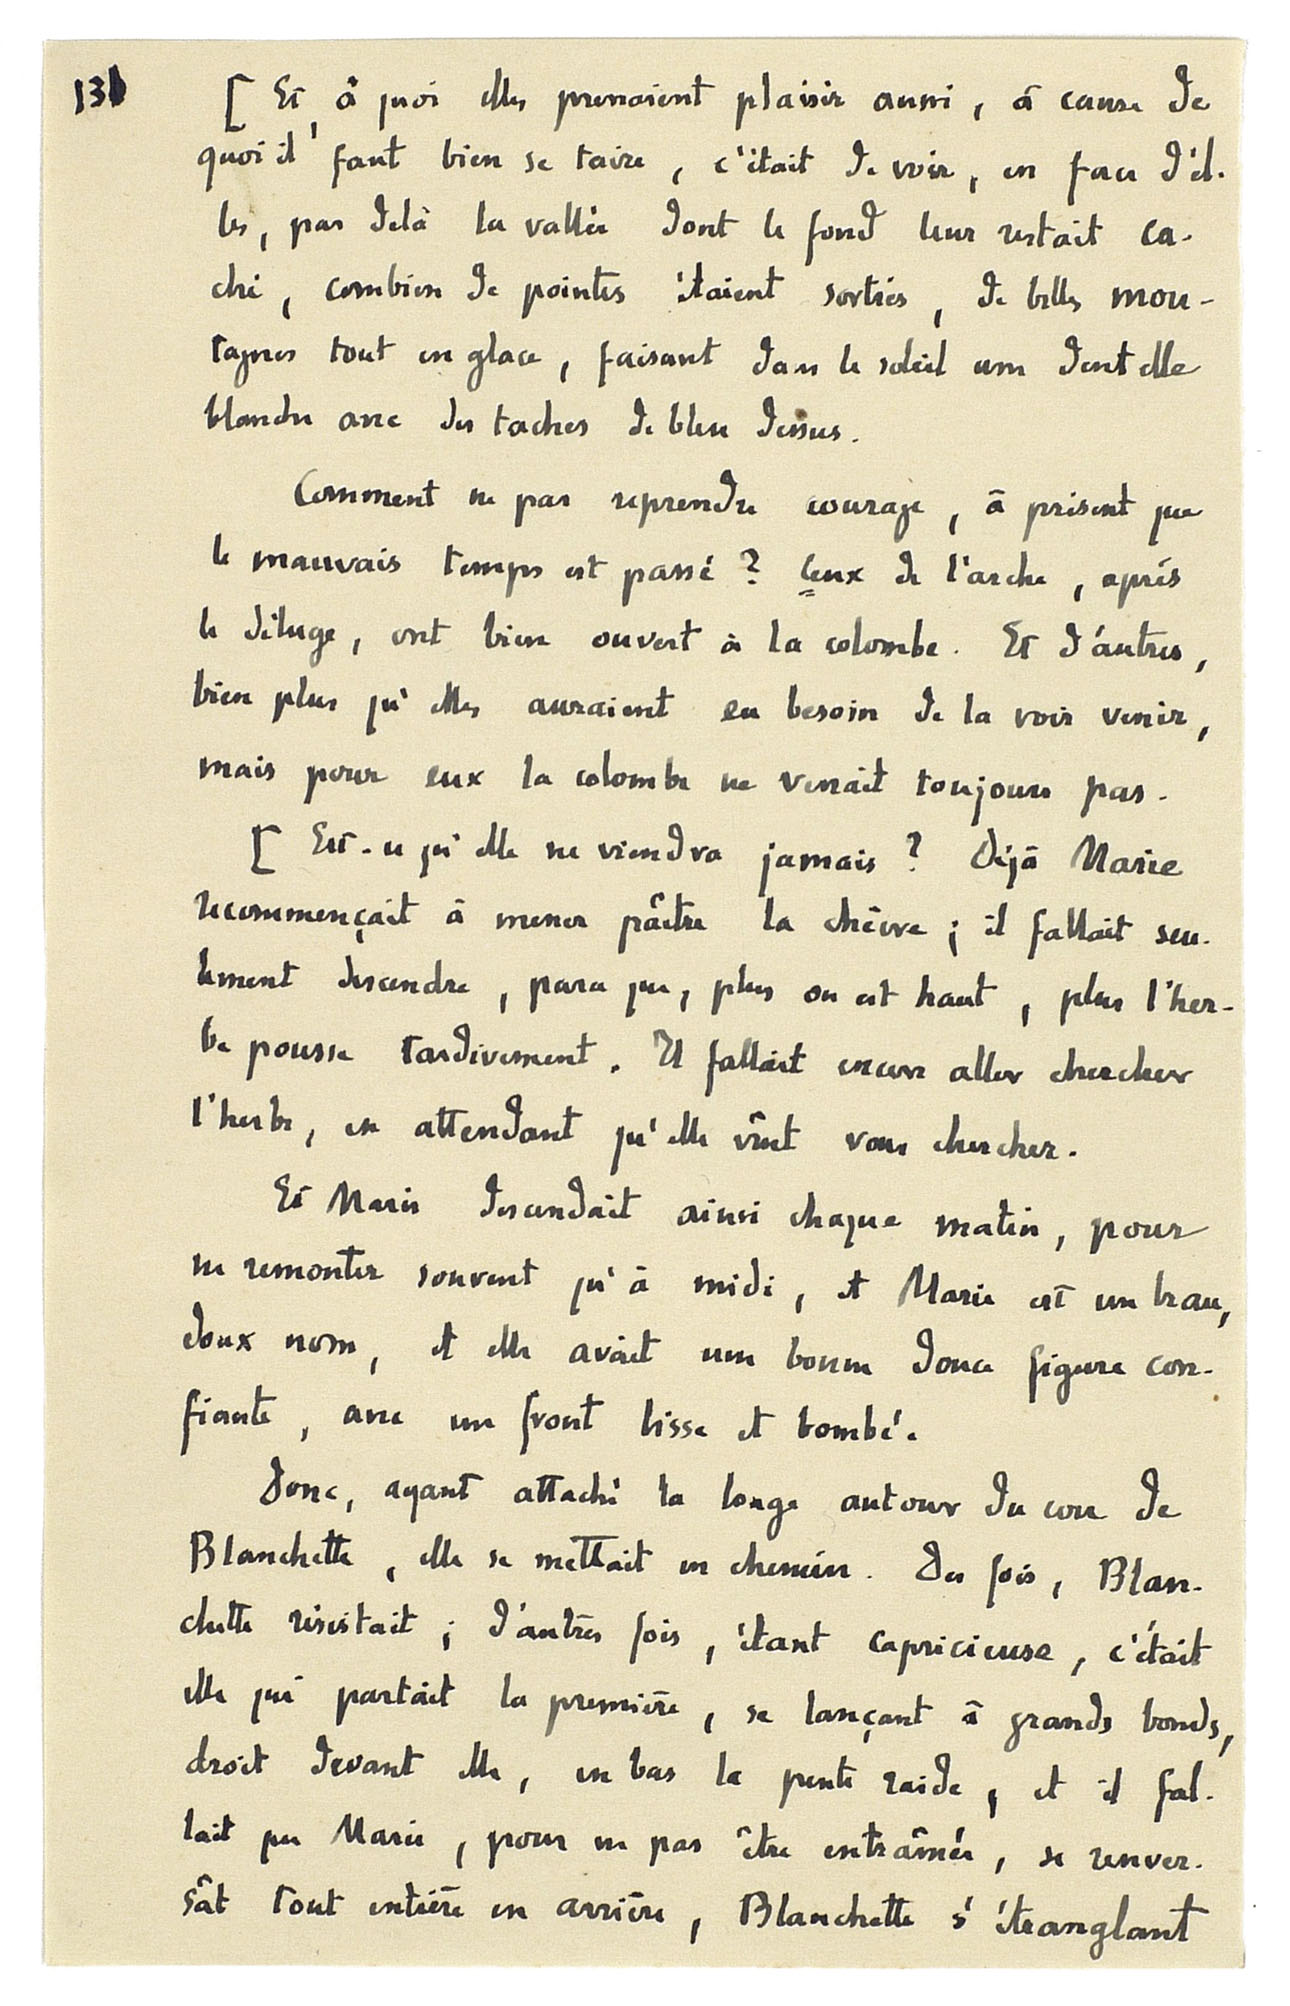 131
[ Et à quoi elles prenaient plaisir aussi, à cause de
quoi il faut bien se taire, c'était de voir, en face d'el-
les, par delà la vallée dont le fond leur restait ca-
ché, combien de pointes étaient sorties, de belles mon-
tagnes tout en glace, faisant dans le soleil une dentelle
blanche avec des taches de bleu dessus.
Comment ne pas reprendre courage, à présent que
le mauvais temps est passé ? Ceux de l'arche, après
le déluge, ont bien ouvert à la colombe. Et d'autres,
bien plus qu'elles auraient eu besoin de la voir venir,
mais pour eux la colombe ne venait toujours pas.
[ Est-ce qu'elle ne viendra jamais ? Déjà Marie
recommençait à mener paître la chèvre ; il fallait seu-
lement descendre, parce que, plus on est haut, plus l'her-
be pousse tardivement. Il fallait encore aller chercher
l'herbe, en attendant qu'elle vînt vous chercher.
Et Marie descendait ainsi chaque matin, pour
ne remonter souvent qu'à midi, et Marie est un beau,
doux nom, et elle avait une bonne douce figure con-
fiante, avec un front lisse et bombé.
Donc, ayant attaché la longe autour du cou de
Blanchette, elle se mettait en chemin. Des fois, Blan-
chette résistait ; d'autres fois, étant capricieuse, c'était
elle qui partait la première, se lançant à grands bonds,
droit devant elle, en bas la pente raide, et il fal-
lait que Marie, pour ne pas être entraînée, se renver-
sât tout entière en arrière, Blanchette s'étranglant